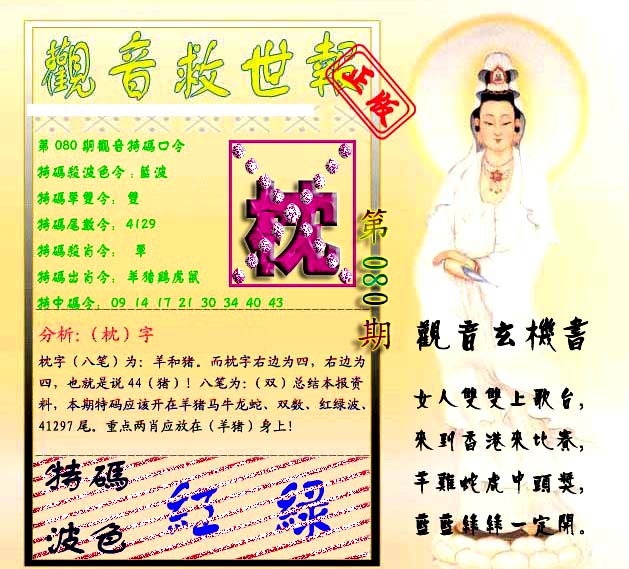 觀音救世報
正版
第 080 期觀音特碼口令
特碼殺波色令：藍波
特碼單雙令： 雙
特碼尾數令： 4129
特碼殺肖令： 單
特碼出肖令： 羊猪鷄虎鼠
特中碼令： 09 14 17 21 30 34 40 43
枕
第 080 期
分析：（枕）字
枕字（八笔）为：羊和猪。而枕字右边为四，右边为
四，也就是说 44（猪）！八笔为：（双）总结本报资
料，本期特码应该开在羊猪马牛龙蛇、双数、红绿波、
41297 尾。重点两肖应放在（羊猪）身上！
特碼
波色
紅 綠
觀音玄機書
女人雙雙上歌台，
來到香港來比賽，
羊雞蛇虎中頭獎，
藍藍綠綠一定開。